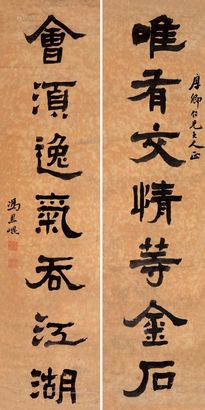 唯有交情等金石
厚卿仁兄大人正
會湏逸氣吞江湖
馮恩崐